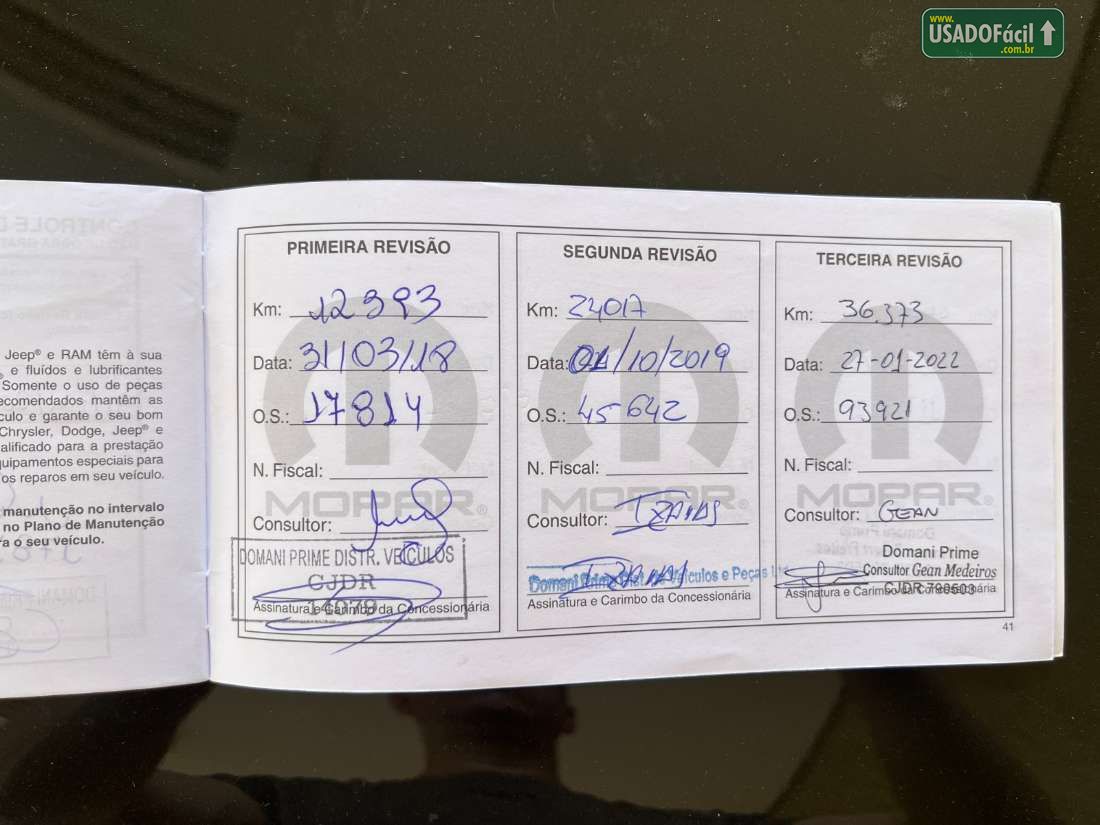 www.
USADOFácil
.com.br
Jeep® e RAM têm à sua
e fluídos e lubrificantes
Somente o uso de peças
recomendados mantêm as
culo e garante o seu bom
Chrysler, Dodge, Jeep® e
alificado para a prestação
uipamentos especiais para
os reparos em seu veículo.
manutenção no intervalo
no Plano de Manutenção
o seu veículo.
PRIMEIRA REVISÃO
Km: 12393
Data: 31/03/18
O.S.: 17814
N. Fiscal:
MOPAR®
Consultor:
DOMANI PRIME DISTR. VEÍCULOS
CJDR
Assinatura e Carimbo da Concessionária
SEGUNDA REVISÃO
Km: 24017
Data: 01/10/2019
O.S.: 45642
N. Fiscal:
MOPAR
Consultor:
Domani Prime Veículos e Peças
Assinatura e Carimbo da Concessionária
TERCEIRA REVISÃO
Km: 36.373
Data: 27-01-2022
O.S.: 93921
N. Fiscal:
MOPAR®
Consultor: GEAN
Domani Prime
Consultor Gean Medeiros
CJDR 790503
Assinatura e Carimbo da Concessionária
41